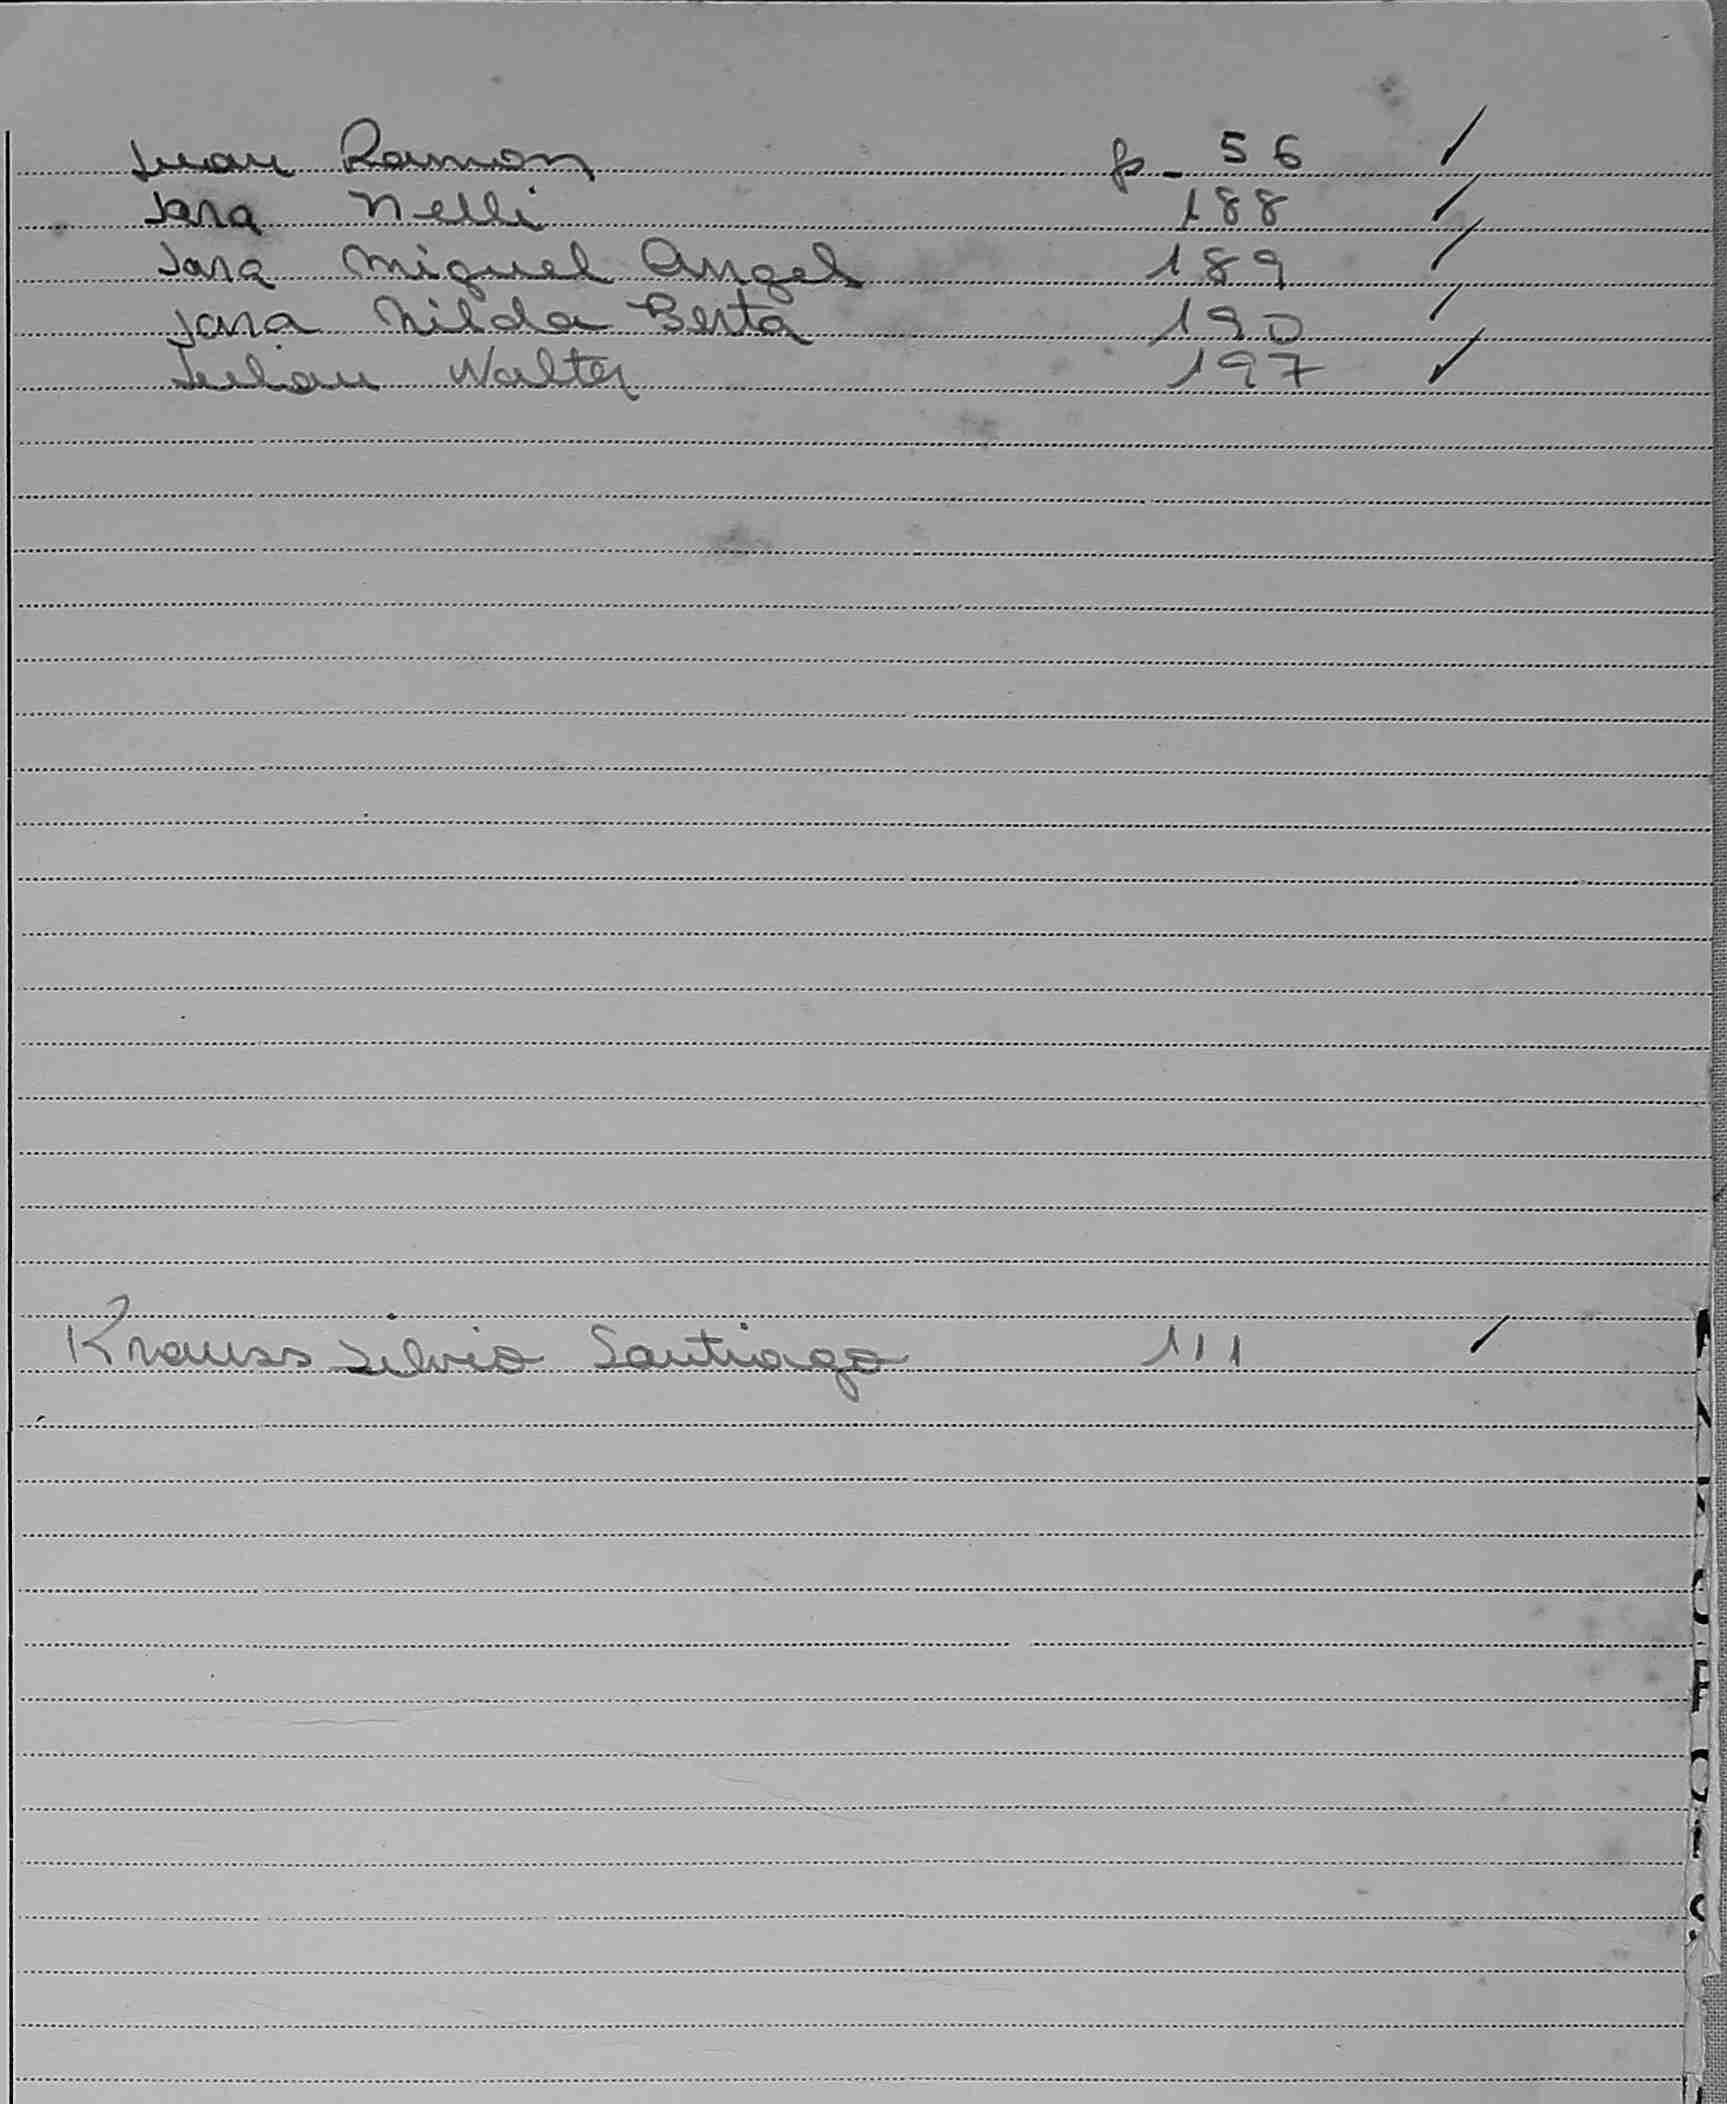 Juan Ramon p- 56 /
Jara Nelli 188 /
Jara Miguel Angel 189 /
Jara Nilda Berta 190 /
Julian Walter 197 /
Krauss Silvio Santiago 111 /